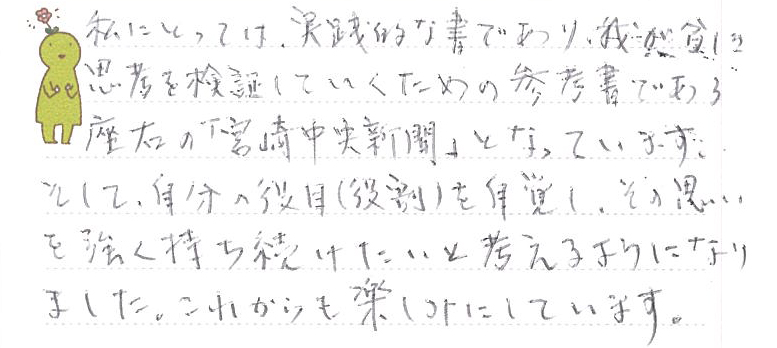 私にとっては、実践的な書であり、我が貧しき
思考を検証していくための参考書である
座右の「宮崎中央新聞」となっています。
そして、自分の役目(役割)を自覚し、その思い
を強く持ち続けたいと考えるようになり
ました。これからも楽しみにしています。